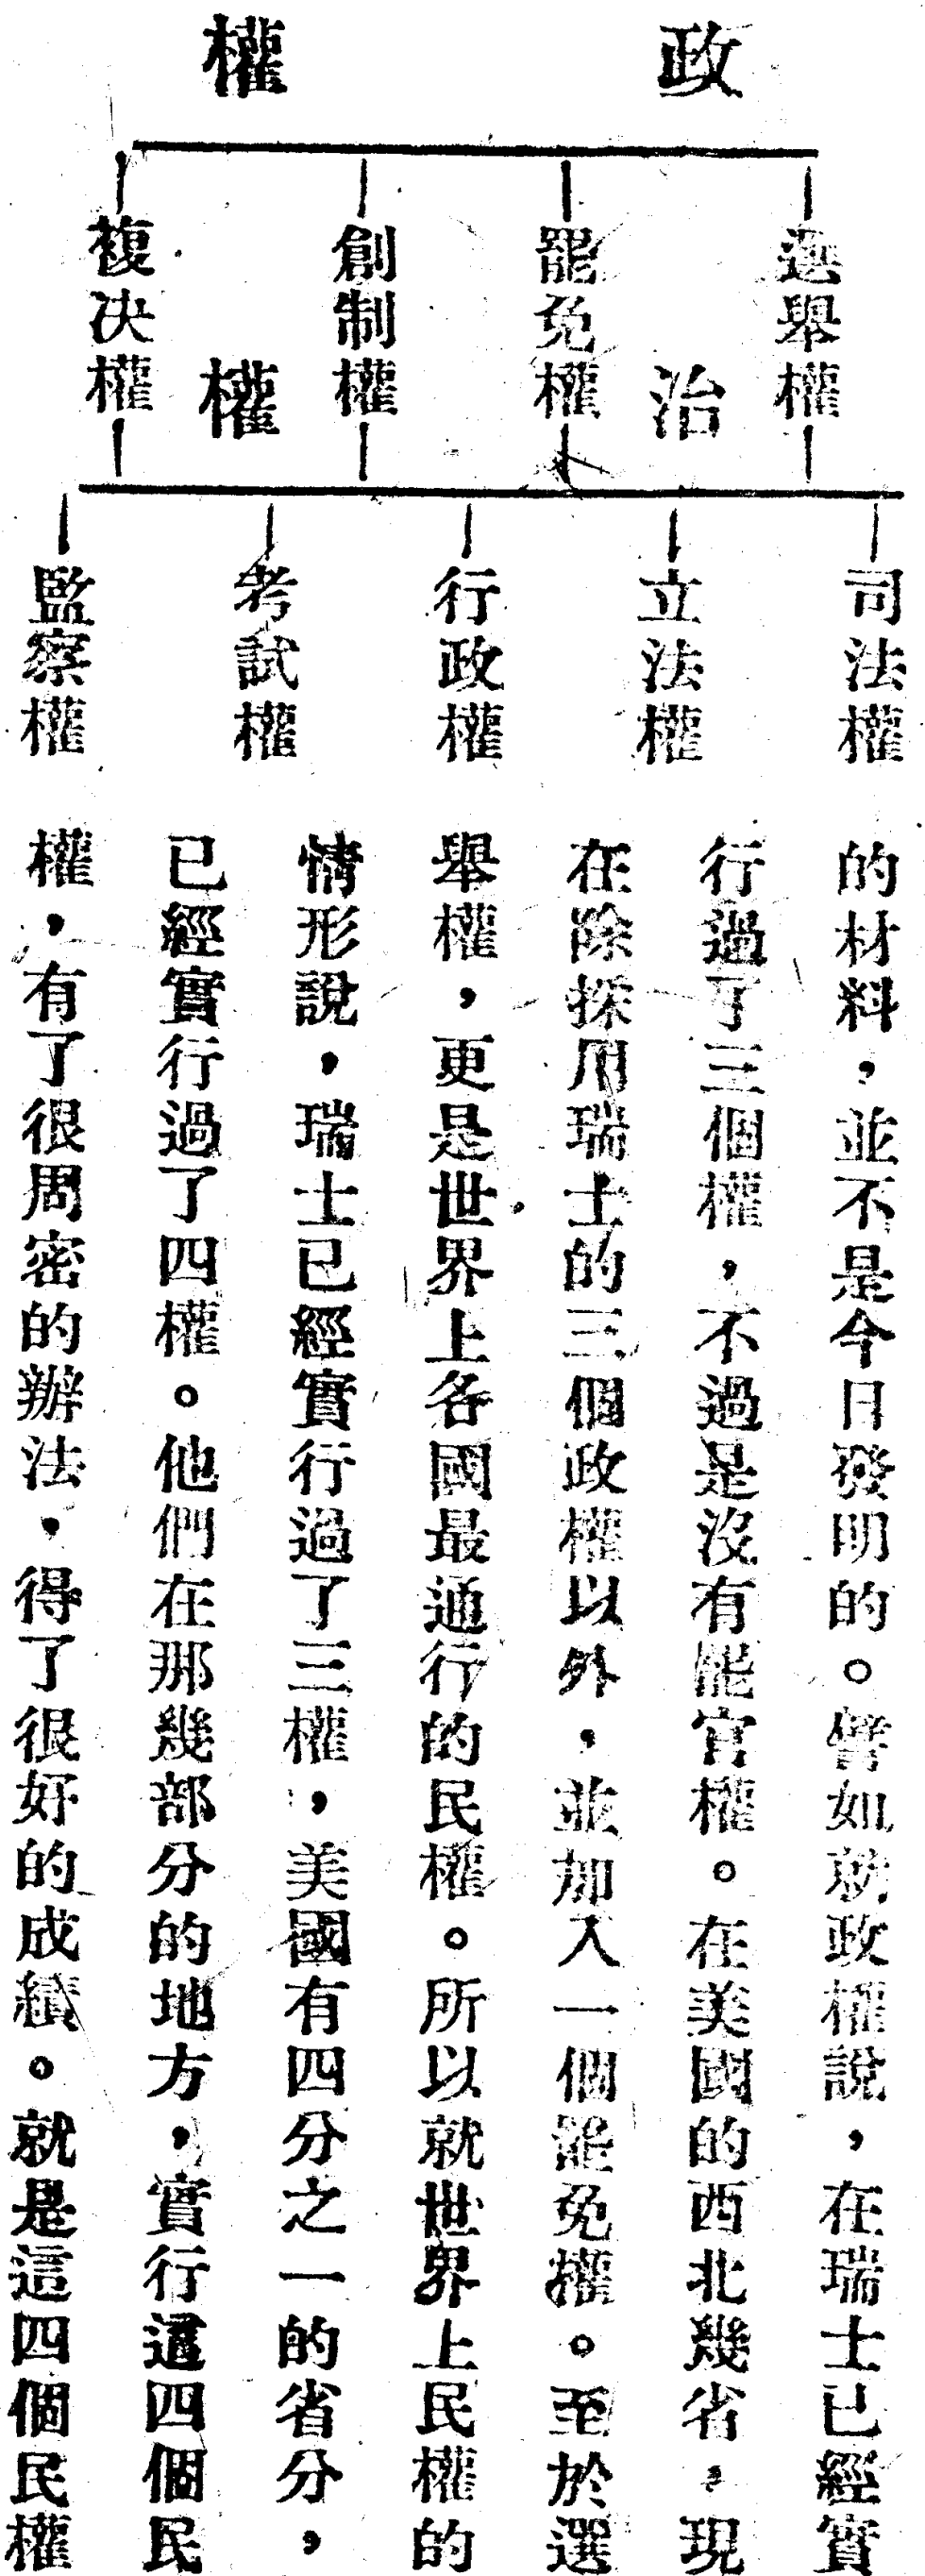 政權
選舉權
罷免權
創制權
複決權
治權
司法權
立法權
行政權
考試權
監察權
的材料，並不是今日發明的。譬如就政權說，在瑞士已經實
行過了三個權，不過是沒有罷官權。在美國的西北幾省，現
在除採用瑞士的三個政權以外，並加入一個罷免權。至於選
舉權，更是世界上各國最通行的民權。所以就世界上民權的
情形說，瑞士已經實行過了三權，美國有四分之一的省分，
已經實行過了四權。他們在那幾部分的地方，實行這四個民
權，有了很周密的辦法，得了很好的成績。就是這四個民權